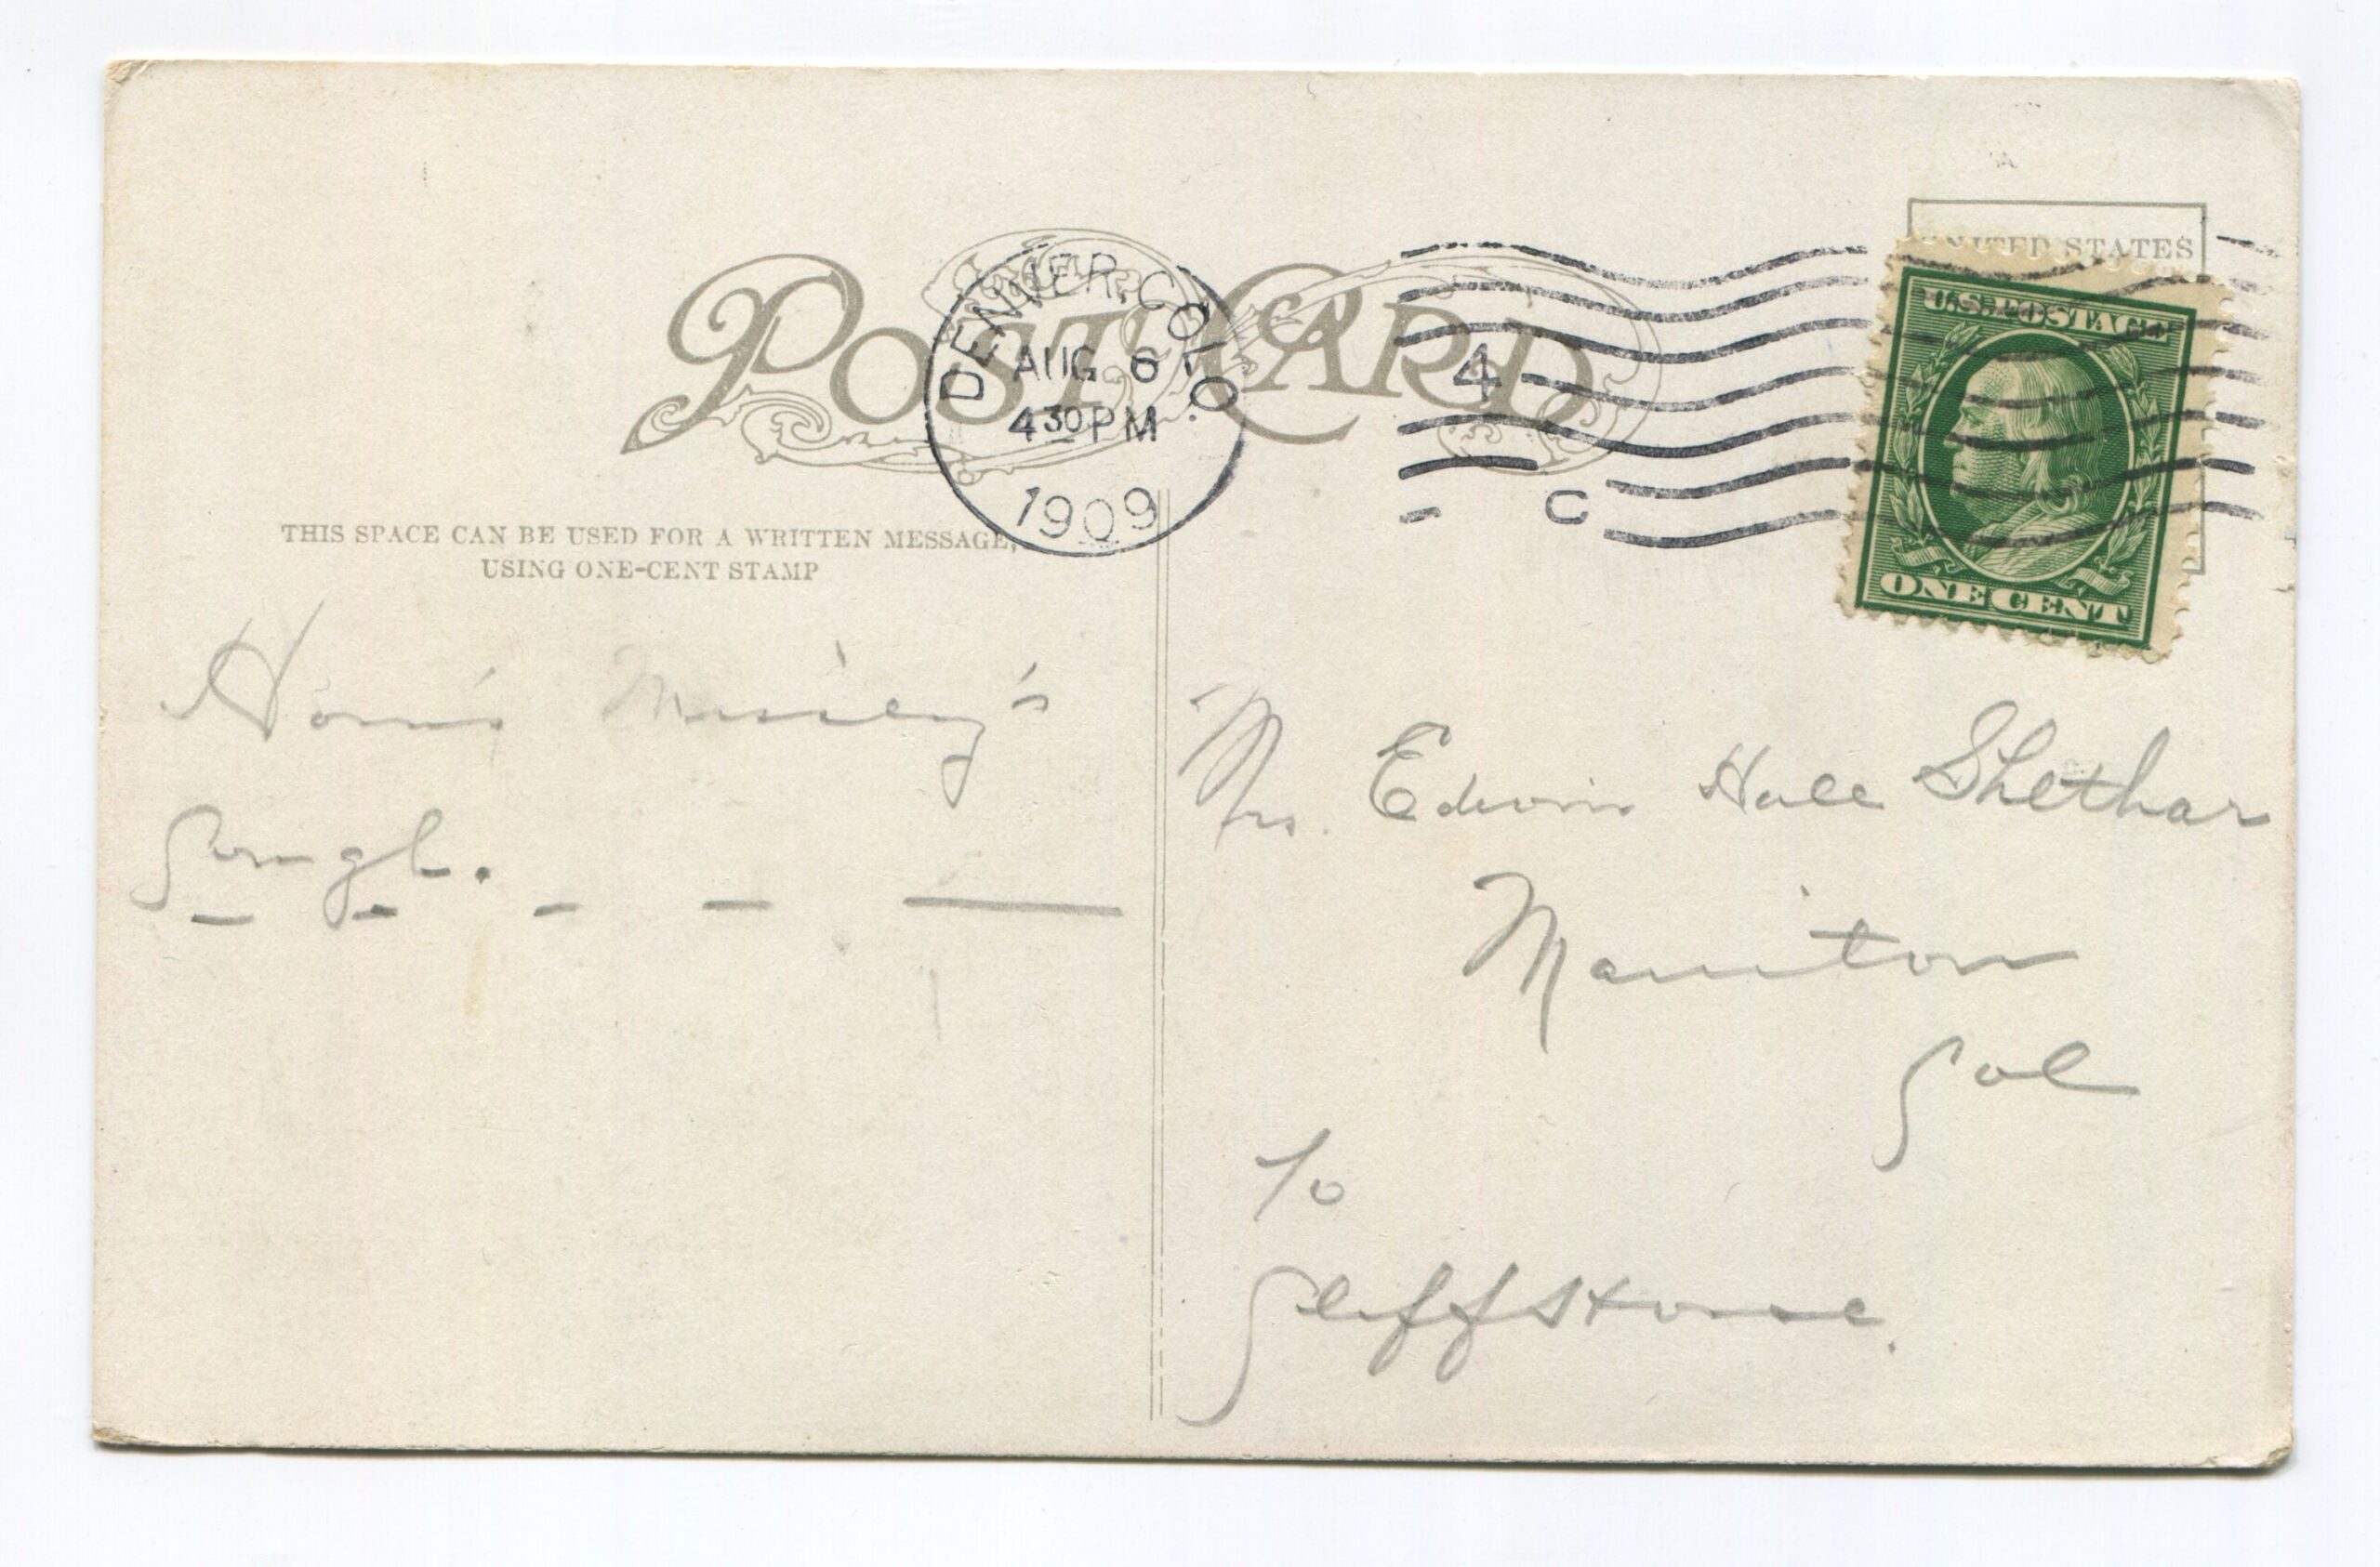 POST CARD
DENVER, COLO.
AUG 6
4 30 PM
1909
4
C
UNITED STATES
U.S. POSTAGE
ONE CENT
THIS SPACE CAN BE USED FOR A WRITTEN MESSAGE,
USING ONE-CENT STAMP
How's
Cough.
Mrs. Edwin Hall Shethar
Maniton
Col
To
Cliff House.